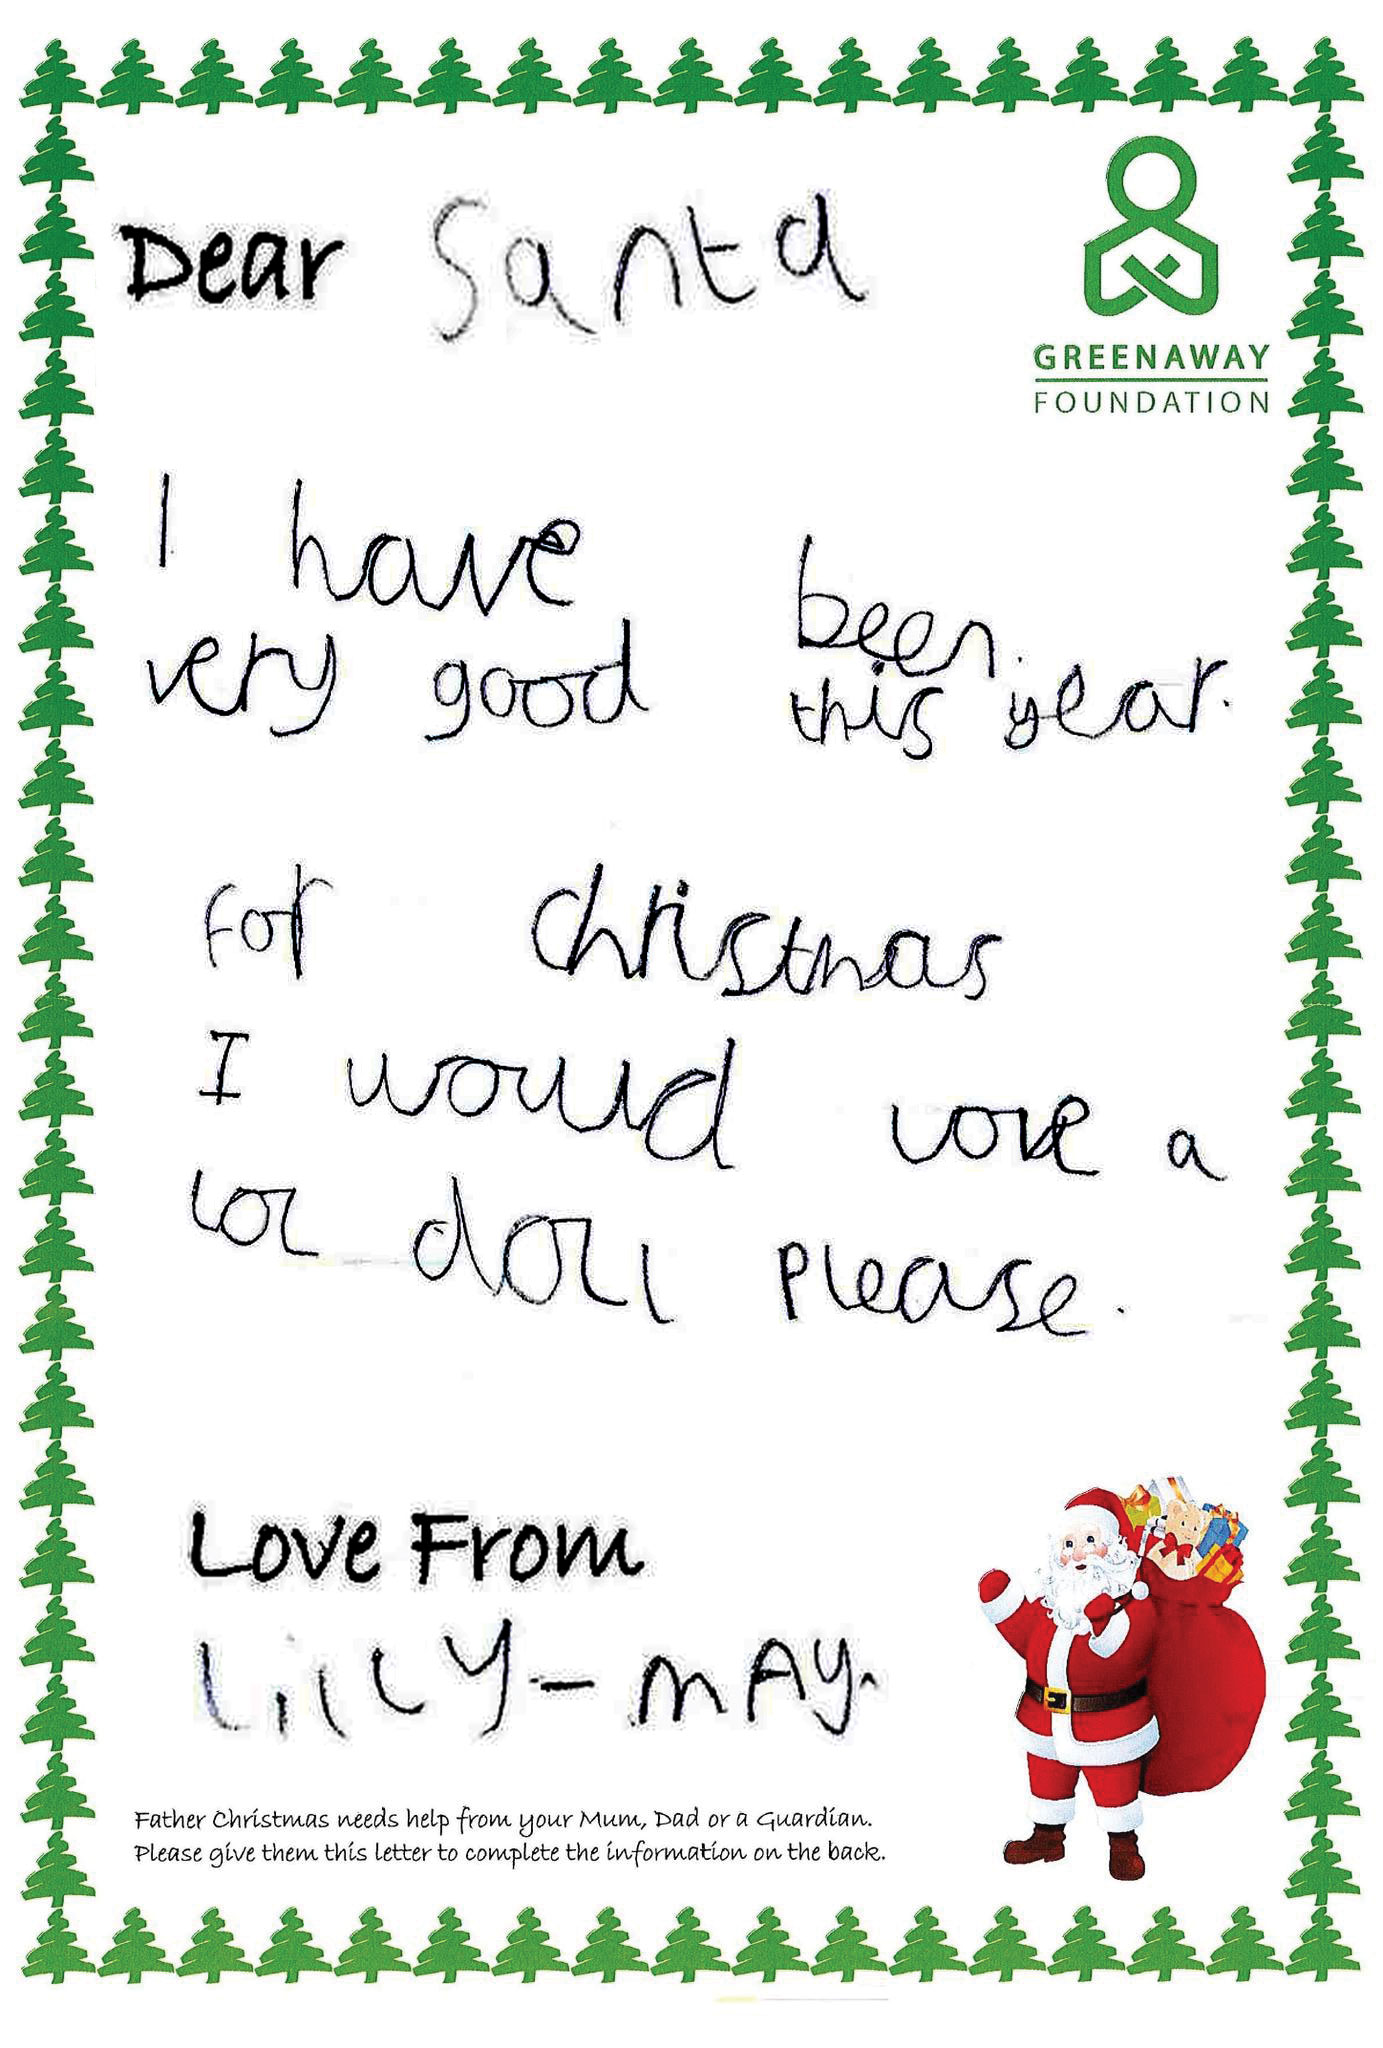 Dear Santa
GREENAWAY
FOUNDATION
I have been.
very good this year.
For christmas
I would love a
lol doll please.
Love From
Lilly-mAy.
Father Christmas needs help from your Mum, Dad or a Guardian.
Please give them this letter to complete the information on the back.